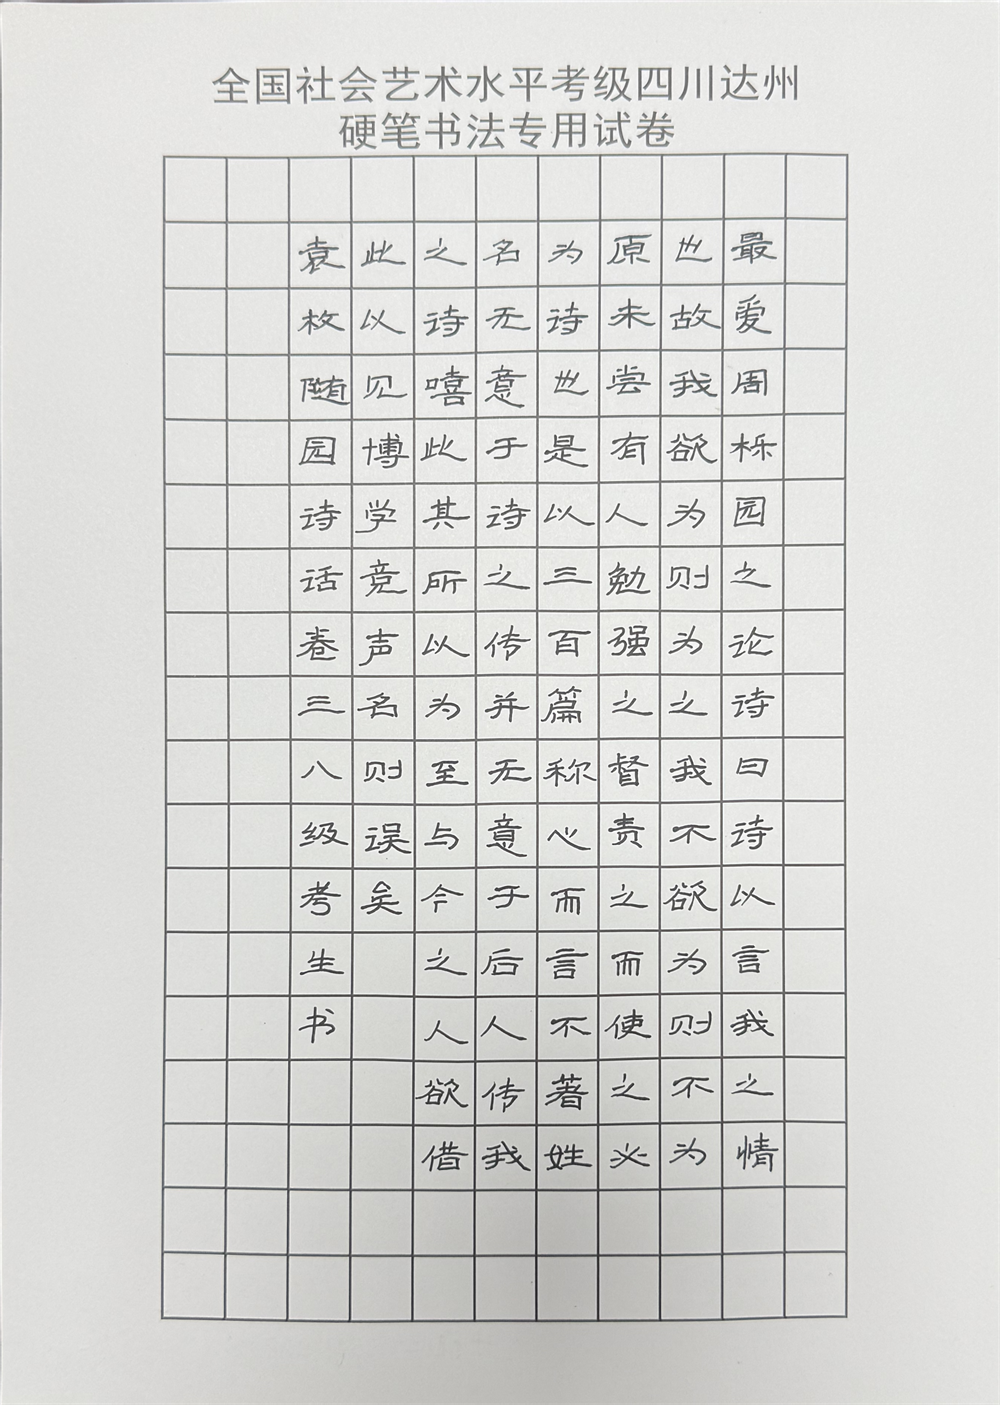 全国社会艺术水平考级四川达州
硬笔书法专用试卷
最爱周栎园之论诗曰诗以言我之情
也故我欲为则为之我不欲为则不为
原未尝有人勉强之督责之而使之必
为诗也是以三百篇称心而言不著姓
名无意于诗之传并无意于后人传我
之诗嘻此其所以为至与今之人欲借
此以见博学竞声名则误矣
袁枚随园诗话卷三八级考生书